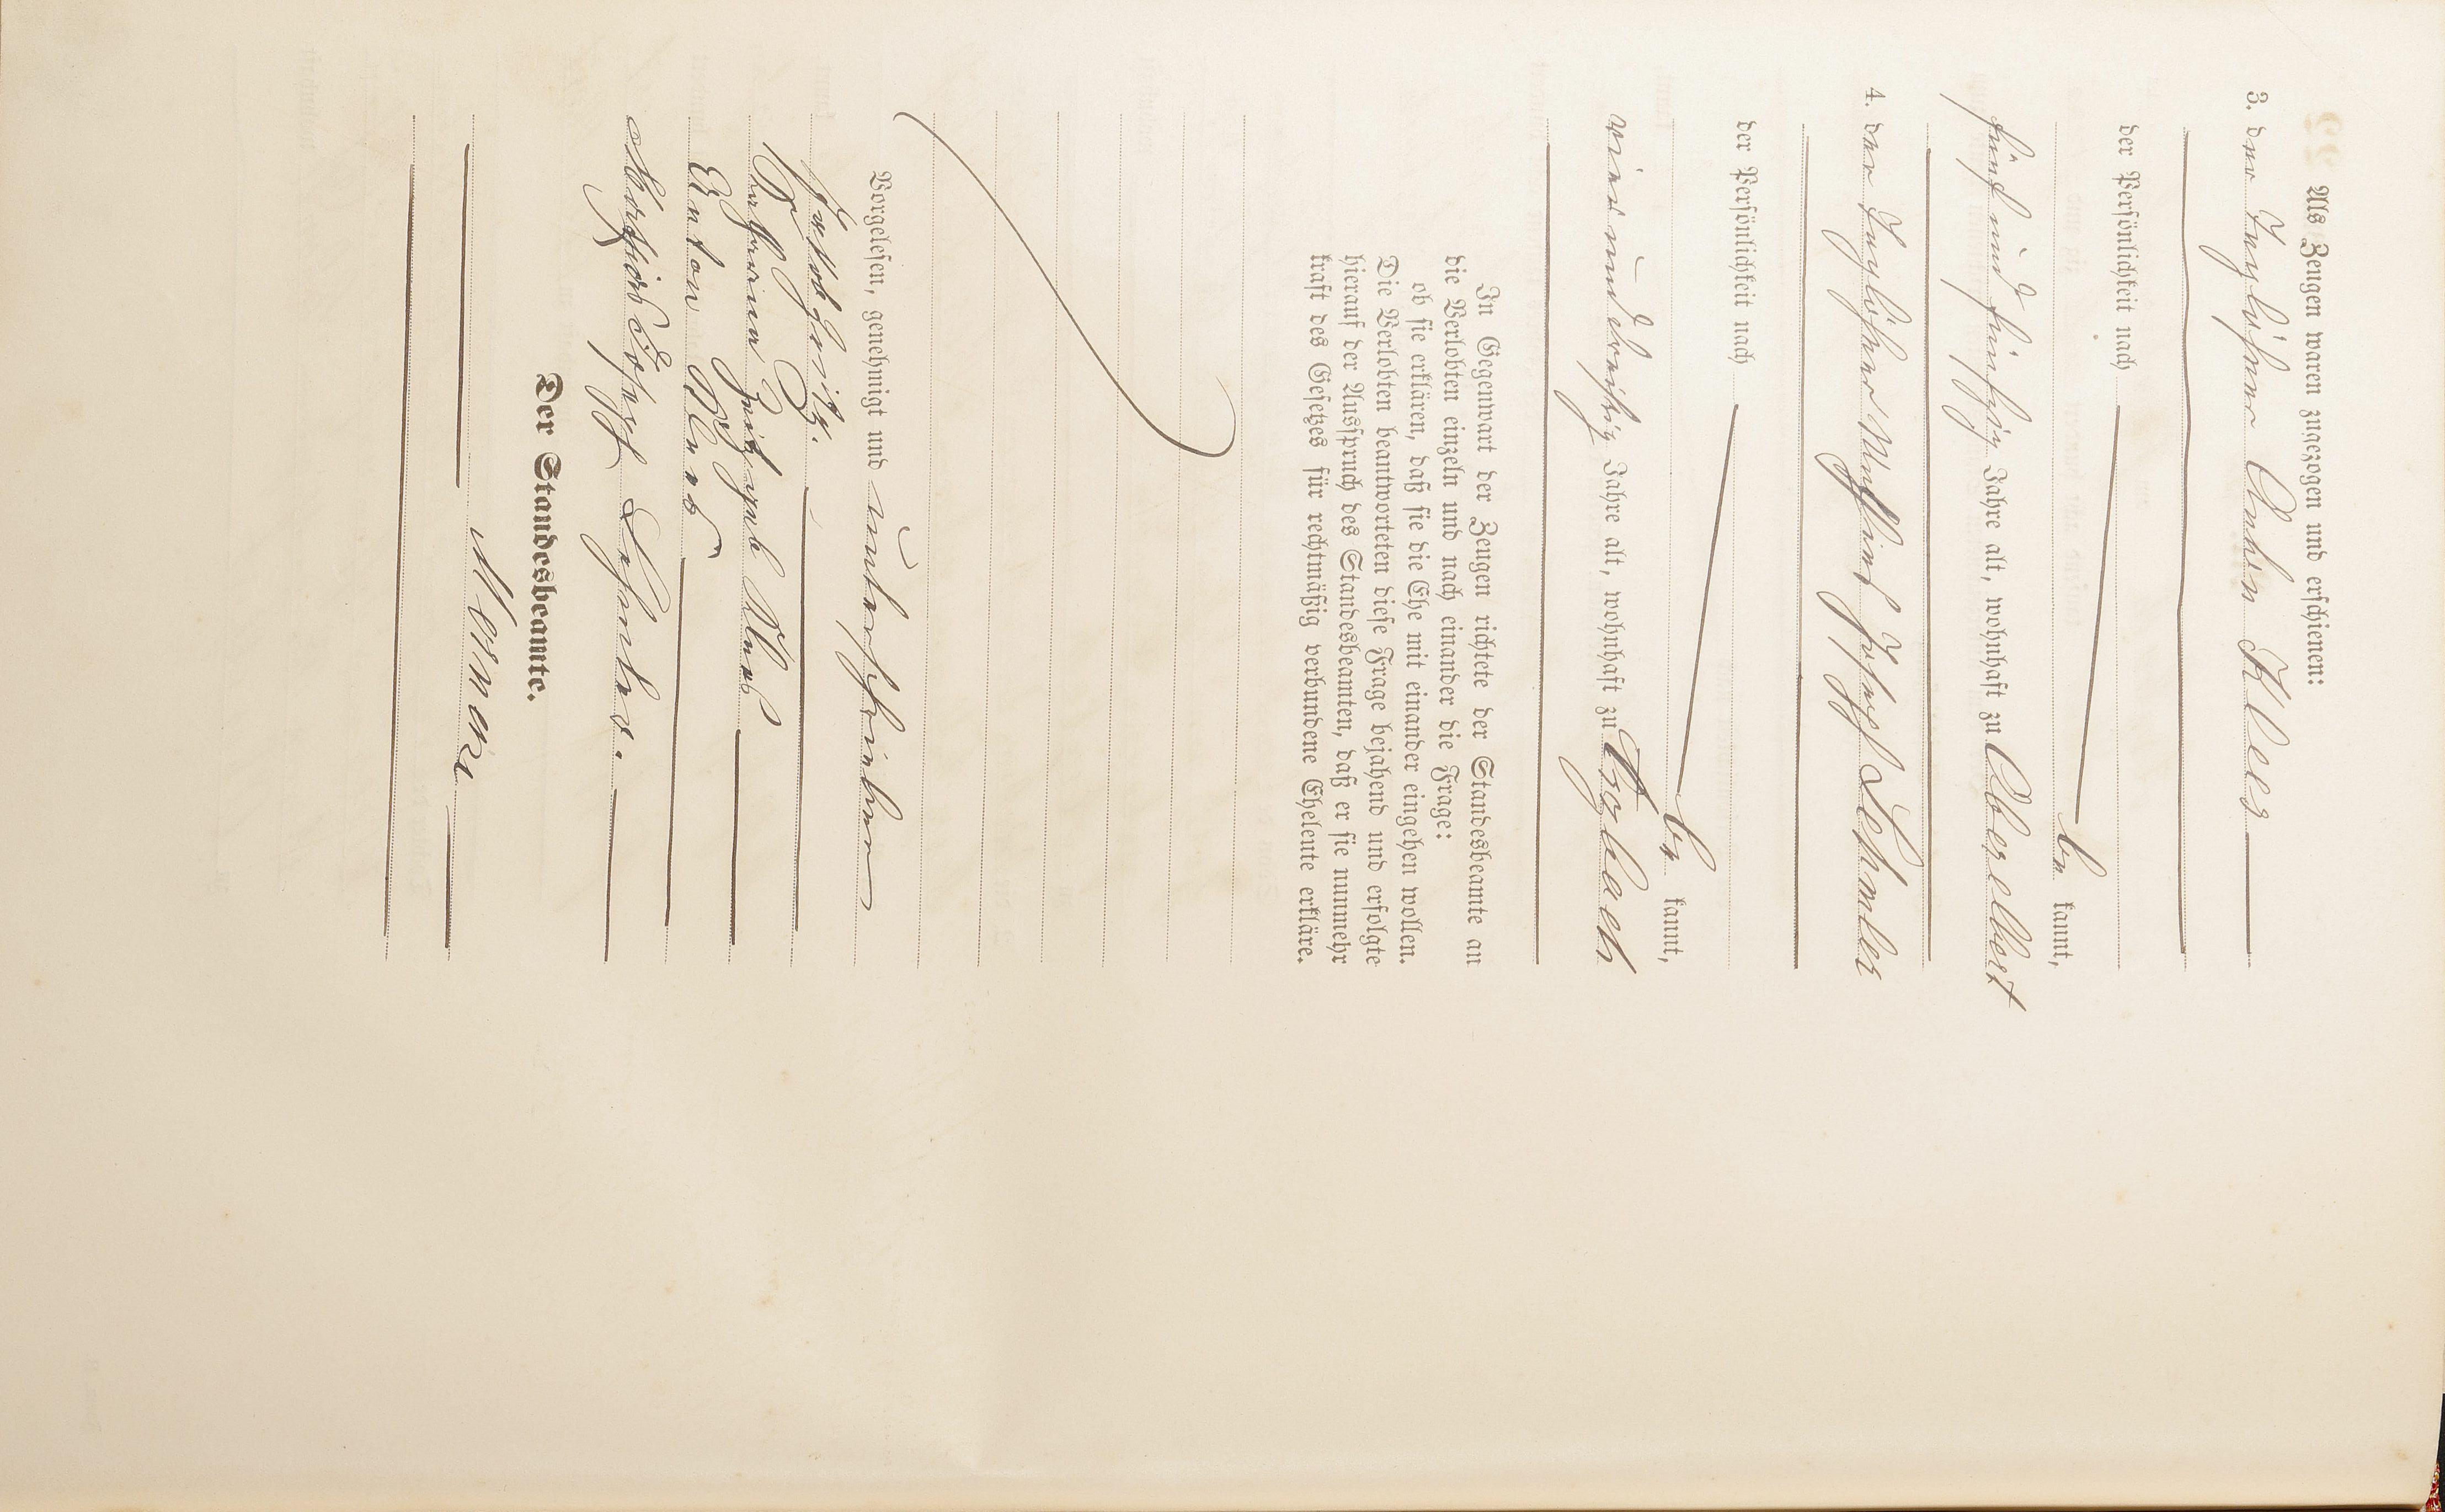 Als Zeugen waren zugezogen und erschienen:
3. der Taglöhner Anton Klees
der Persönlichkeit nach
be kannt,
fünf und fünfzig Jahre alt, wohnhaft zu Oberelbert
4. der Taglöhner Mathias Joseph Lehmler
der Persönlichkeit nach
be kannt,
vier und dreißig Jahre alt, wohnhaft zu Arzbach
In Gegenwart der Zeugen richtete der Standesbeamte an
die Verlobten einzeln und nach einander die Frage:
ob sie erklären, daß sie die Ehe mit einander eingehen wollen.
Die Verlobten beantworteten diese Frage bejahend und erfolgte
hierauf der Ausspruch des Standesbeamten, daß er sie nunmehr
kraft des Gesetzes für rechtmäßig verbundene Eheleute erkläre.
Vorgelesen, genehmigt und unterschrieben
Jakob
geb. Klees
Anton Klees
Joseph Lehmler.
Der Standesbeamte.